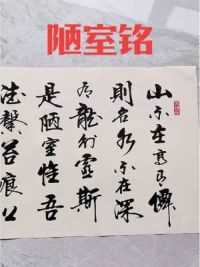 陋室铭
山不在高有僊
則名水不在深
有龍則靈斯
是陋室惟吾
德馨苔痕上